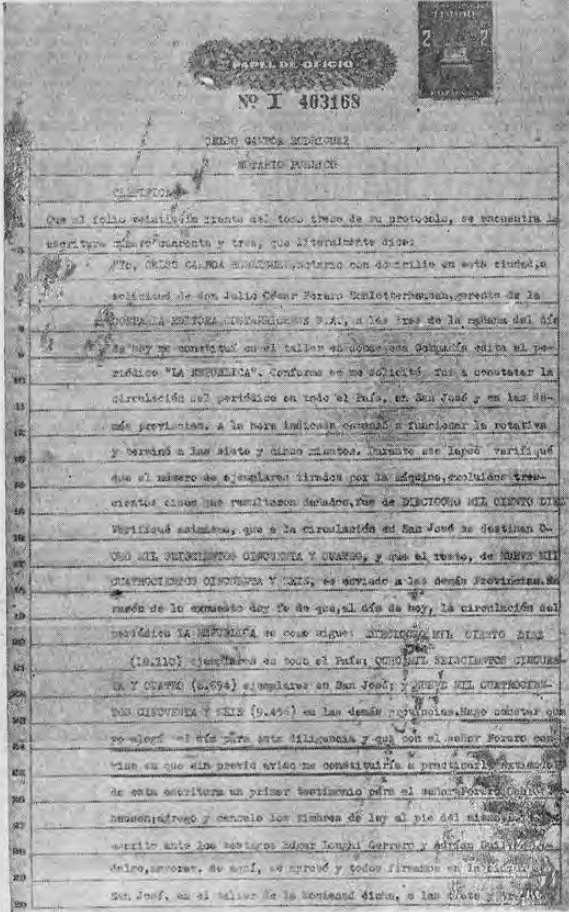 PAPEL DE OFICIO
2 2
Nº I 403168
CELSO GAMBOA RODRIGUEZ
NOTARIO PUBLICO
CERTIFICO:
Que al folio frente del tomo trece de su protocolo, se encuentra la
escritura número cuarenta y tres, que literalmente dice:
"Yo, CELSO GAMBOA RODRIGUEZ, notario con domicilio en esta ciudad, a
solicitud de don Julio César Forero gerente de la
COMPAÑIA EDITORA COSTARRICENSE S.A., a las tres de la mañana del día
de hoy me constituí en el taller en donde esa Compañía edita el pe-
riódico "LA REPUBLICA". Conforme se me solicitó, fui a constatar la
circulación del periódico en todo el País, en San José y en las de-
más provincias. A la hora indicada comenzó a funcionar la rotativa
y terminó a las siete y cinco minutos. Durante ese lapso verifiqué
que el número de ejemplares tirados por la máquina, excluidos tres-
cientos cinco que resultaron dañados, fue de DIECIOCHO MIL CIENTO DIEZ
Verifiqué asimismo, que a la circulación en San José se destinan O-
CHO MIL SEISCIENTOS CINCUENTA Y CUATRO, y que el resto, de NUEVE MIL
CUATROCIENTOS CINCUENTA Y SEIS, es enviado a las demás Provincias. En
razón de lo expuesto doy fe de que, al día de hoy, la circulación del
periódico LA REPUBLICA es como sigue: DIECIOCHO MIL CIENTO DIEZ
(18.110) ejemplares en todo el País; OCHO MIL SEISCIENTOS CINCUEN-
TA Y CUATRO (8.654) ejemplares en San José; y NUEVE MIL CUATROCIEN-
TOS CINCUENTA Y SEIS (9.456) en las demás provincias. Hago constar que
yo elegí el día para esta diligencia y que con el señor Forero con-
vine en que sin previo aviso me constituiría a practicarla.
de esta escritura un primer testimonio para el señor Forero
agrego y cancelo los timbres de ley al pie del mismo.
escrito ante los testigos Edgar Longhi Gerrero y Adrián
mayores, de aquí, se aprobó y todos firmamos en la
San José, en el taller de la Sociedad dicha, a las siete y